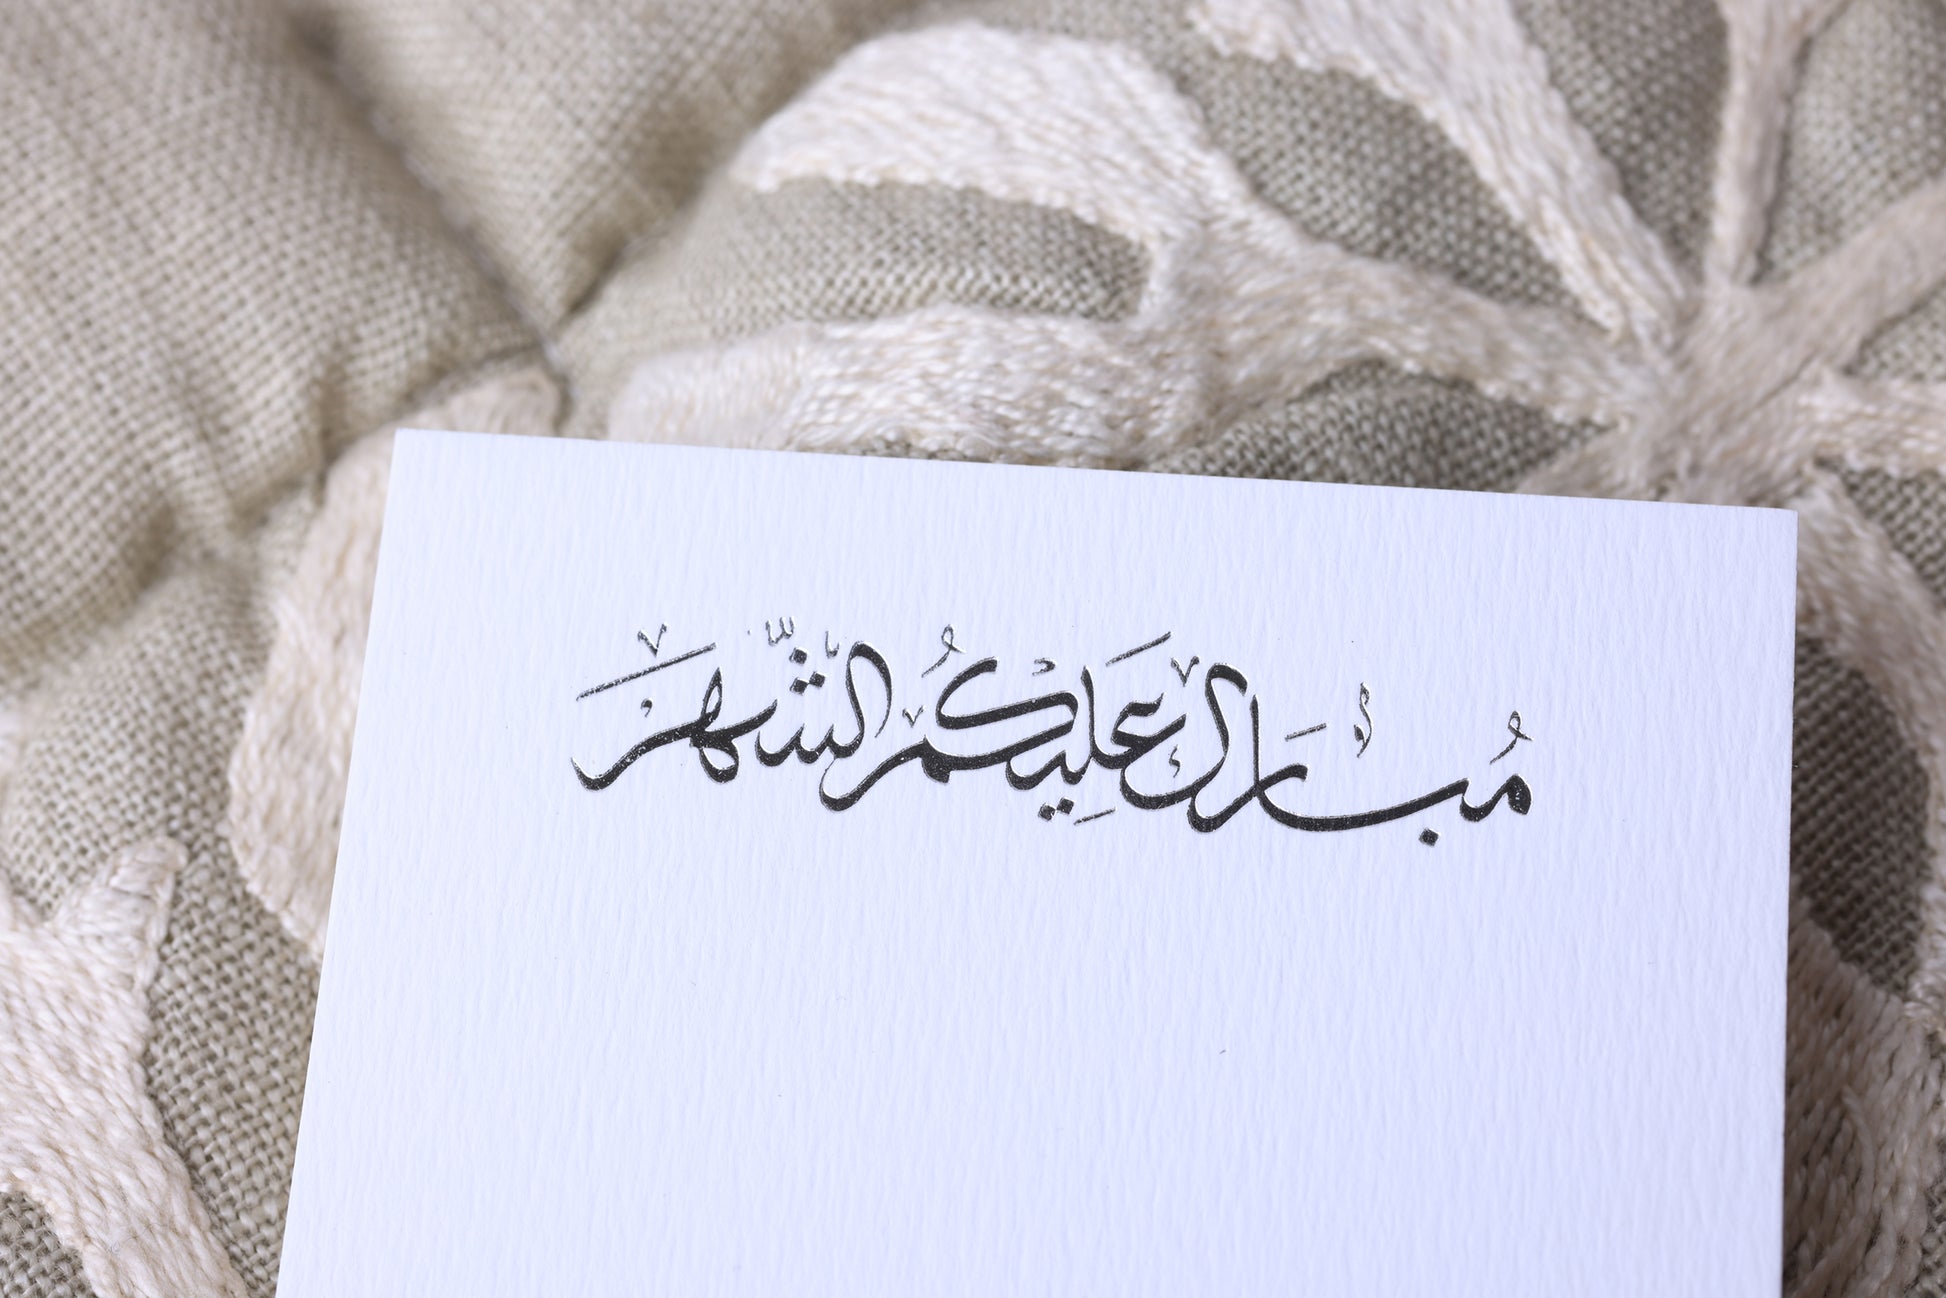 مُبَارَك عَلَيِكُم الشَّهَر